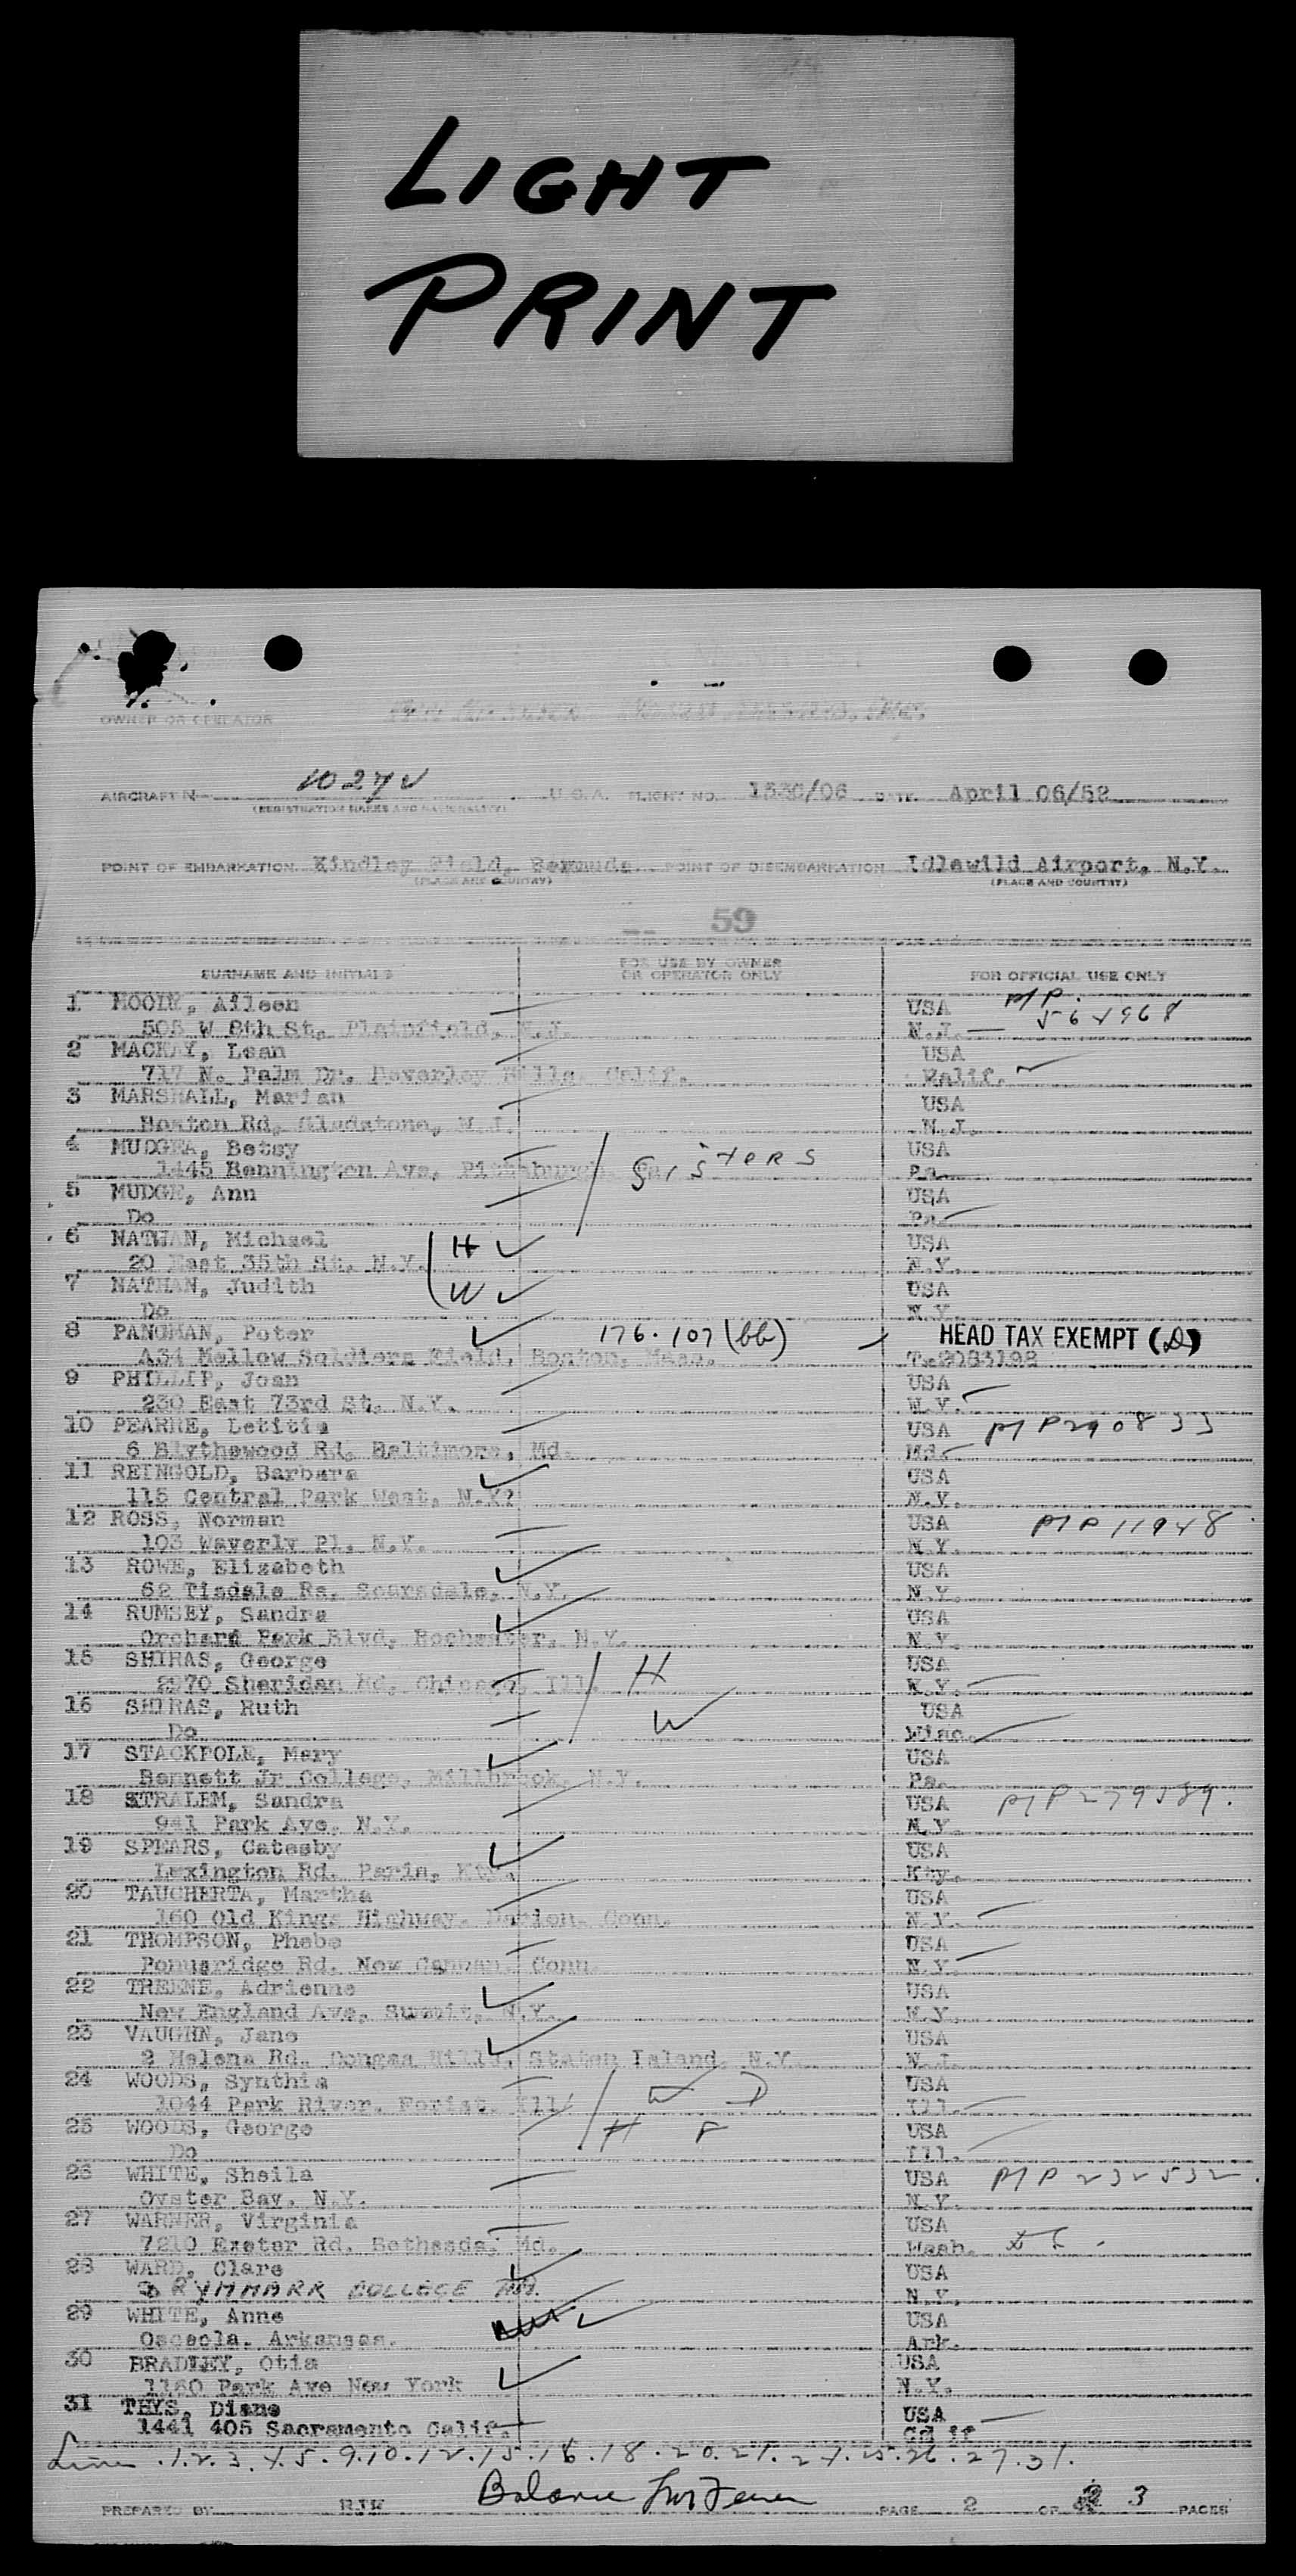 LIGHT
PRINT
OWNER OR OPERATOR
AIRCRAFT N 1027V U.S.A. FLIGHT NO. 1530/06 DATE April 06/52
(REGISTRATION MARKS AND NATIONALITY)
POINT OF EMBARKATION Kindley Field, Bermuda POINT OF DISEMBARKATION Idlewild Airport, N.Y.
(PLACE AND COUNTRY) (PLACE AND COUNTRY)
59
SURNAME AND INITIALS FOR USE BY OWNER OR OPERATOR ONLY FOR OFFICIAL USE ONLY
1 Aileen USA P/P
505 W 8th St, Plainfield, N.J. N.J.
2 MACKAY, Lean USA
717 N. Palm Dr. Beverley Hills, Calif. Calif.
3 MARSHALL, Marian USA
Rd, Gladstone, N.J. N.J.
4 Betsy USA
1445 Bennington Ave, Pittsburgh, Pa. Sisters Pa.
5 MUDGE, Ann USA
Do Pa.
6 NATHAN, Michael H USA
20 East 35th St, N.Y. N.Y.
7 NATHAN, Judith W USA
Do N.Y.
8 PANGMAN, Peter 176.107(bb) HEAD TAX EXEMPT (D)
A34 Mellow Soldiers Field, Boston, Mass. T.2083192
9 PHILLIP, Joan USA
230 East 73rd St, N.Y. N.Y.
10 PEARRE, Letitia USA P/P290833
6 Blythewood Rd, Baltimore, Md. Md.
11 REINGOLD, Barbara USA
115 Central Park West, N.Y? N.Y.
12 ROSS, Norman USA P/P 11948
103 Waverly Pl, N.Y. N.Y.
13 ROWE, Elizabeth USA
62 Tisdale Ra, Scarsdale, N.Y. N.Y.
14 RUMSEY, Sandra USA
Orchard Park Blvd, Rochester, N.Y. N.Y.
15 SHIRAS, George H USA
2970 Sheridan Rd, Chicago, Ill. N.Y.
16 SHIRAS, Ruth W USA
Do Wisc.
17 STACKPOLE, Mary USA
Bennett Jr College, Millbrook, N.Y. Pa.
18 STRALEM, Sandra USA P/P279589.
941 Park Ave, N.Y. N.Y.
19 SPEARS, Catesby USA
Lexington Rd. Paris, Kty. Kty.
20 TAUCHERTA, Martha USA
160 Old Kings Highway, Darien, Conn. N.Y.
21 THOMPSON, Phebe USA
Ponusridge Rd. New Canaan, Conn. N.Y.
22 TREENE, Adrienne USA
New England Ave, Summit, N.Y. N.Y.
23 VAUGHN, Jane USA
2 Helena Rd. Dongan Hills, Staten Island, N.Y. N.J.
24 WOODS, Synthia W D USA
1044 Park River, Forist, Ill Ill.
25 WOODS, George H F USA
Do Ill.
26 WHITE, Sheila USA P/P 232532
Oyster Bay, N.Y. N.Y.
27 WARNER, Virginia USA
7210 Exeter Rd. Bethesda, Md. Wash.
28 WARD, Clare USA
COLLEGE N.Y.
29 WHITE, Anne USA
Osceola, Arkansas. Ark.
30 BRADLEY, Otis USA
1160 Park Ave New York N.Y.
31 THYS, Diane USA
1441 405 Sacramento Calif.
Line .1.2.3.4.5.9.10.12.15.16.18.20.21.24.25.26.27.31.
Balance
PREPARED BY RJW PAGE 2 OF 3 PAGES